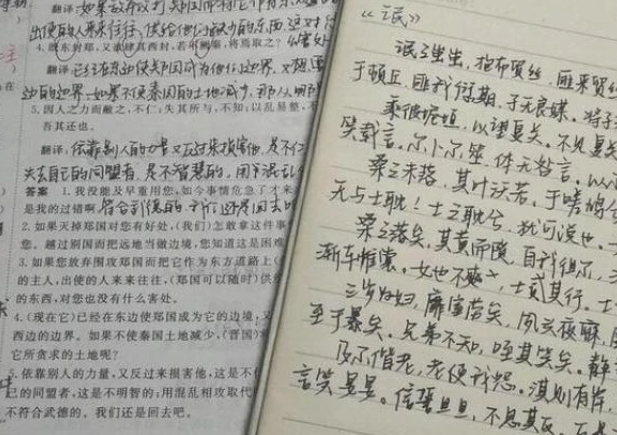 翻译：如果
出使的人来来往往，供给他们缺少的东西，这对
4.既东封郑，又欲肆其西封，若不阙秦，将焉取之？
翻译：已经在东边使郑国成为他们边界，又想
边的边界，如果不使秦国的土地减少，那从哪
5.因人之力而敝之，不仁；失其所与，不知；以乱易整，不
吾其还也。
翻译：依靠别人的力量又反过来损害他，是不仁
失去自己的同盟者，是不智慧的，用
答案 1.我没能及早重用您，如今事情危急了才来
是我的过错啊
2.如果灭掉郑国对您有好处，(我们)怎敢拿这件事
您。越过别国而把远地当做边境，您知道这是困难
3.如果您放弃围攻郑国而把它作为东方道路上(
的主人，出使的人来来往往，(郑国可以随时)供
的东西，对您也没有什么害处。
4.(现在它)已经在东边使郑国成为它的边境，又
西边的边界。如果不使秦国土地减少，(晋国)
它所贪求的土地呢？
5.依靠别人的力量，又反过来损害他，这是不仁
己的同盟者，这是不明智的；用混乱相攻取代
不符合武德的。我们还是回去吧。
《氓》
氓之蚩蚩，抱布贸丝，匪来贸丝
于顿丘，匪我愆期，子无良媒。将子
乘彼垝垣，以望复关。不见复关
笑载言。尔卜尔筮，体无咎言。以
桑之未落，其叶沃若。于嗟鸠兮
无与士耽！士之耽兮，犹可说也。
桑之落矣，其黄而陨，自我徂尔，三
渐车帷裳。女也不爽，士贰其行。士
三岁为妇，靡室劳矣，夙兴夜寐，
至于暴矣。兄弟不知，咥其笑矣。静
及尔偕老，老使我怨。淇则有岸，
言笑晏晏。信誓旦旦，不思其反。